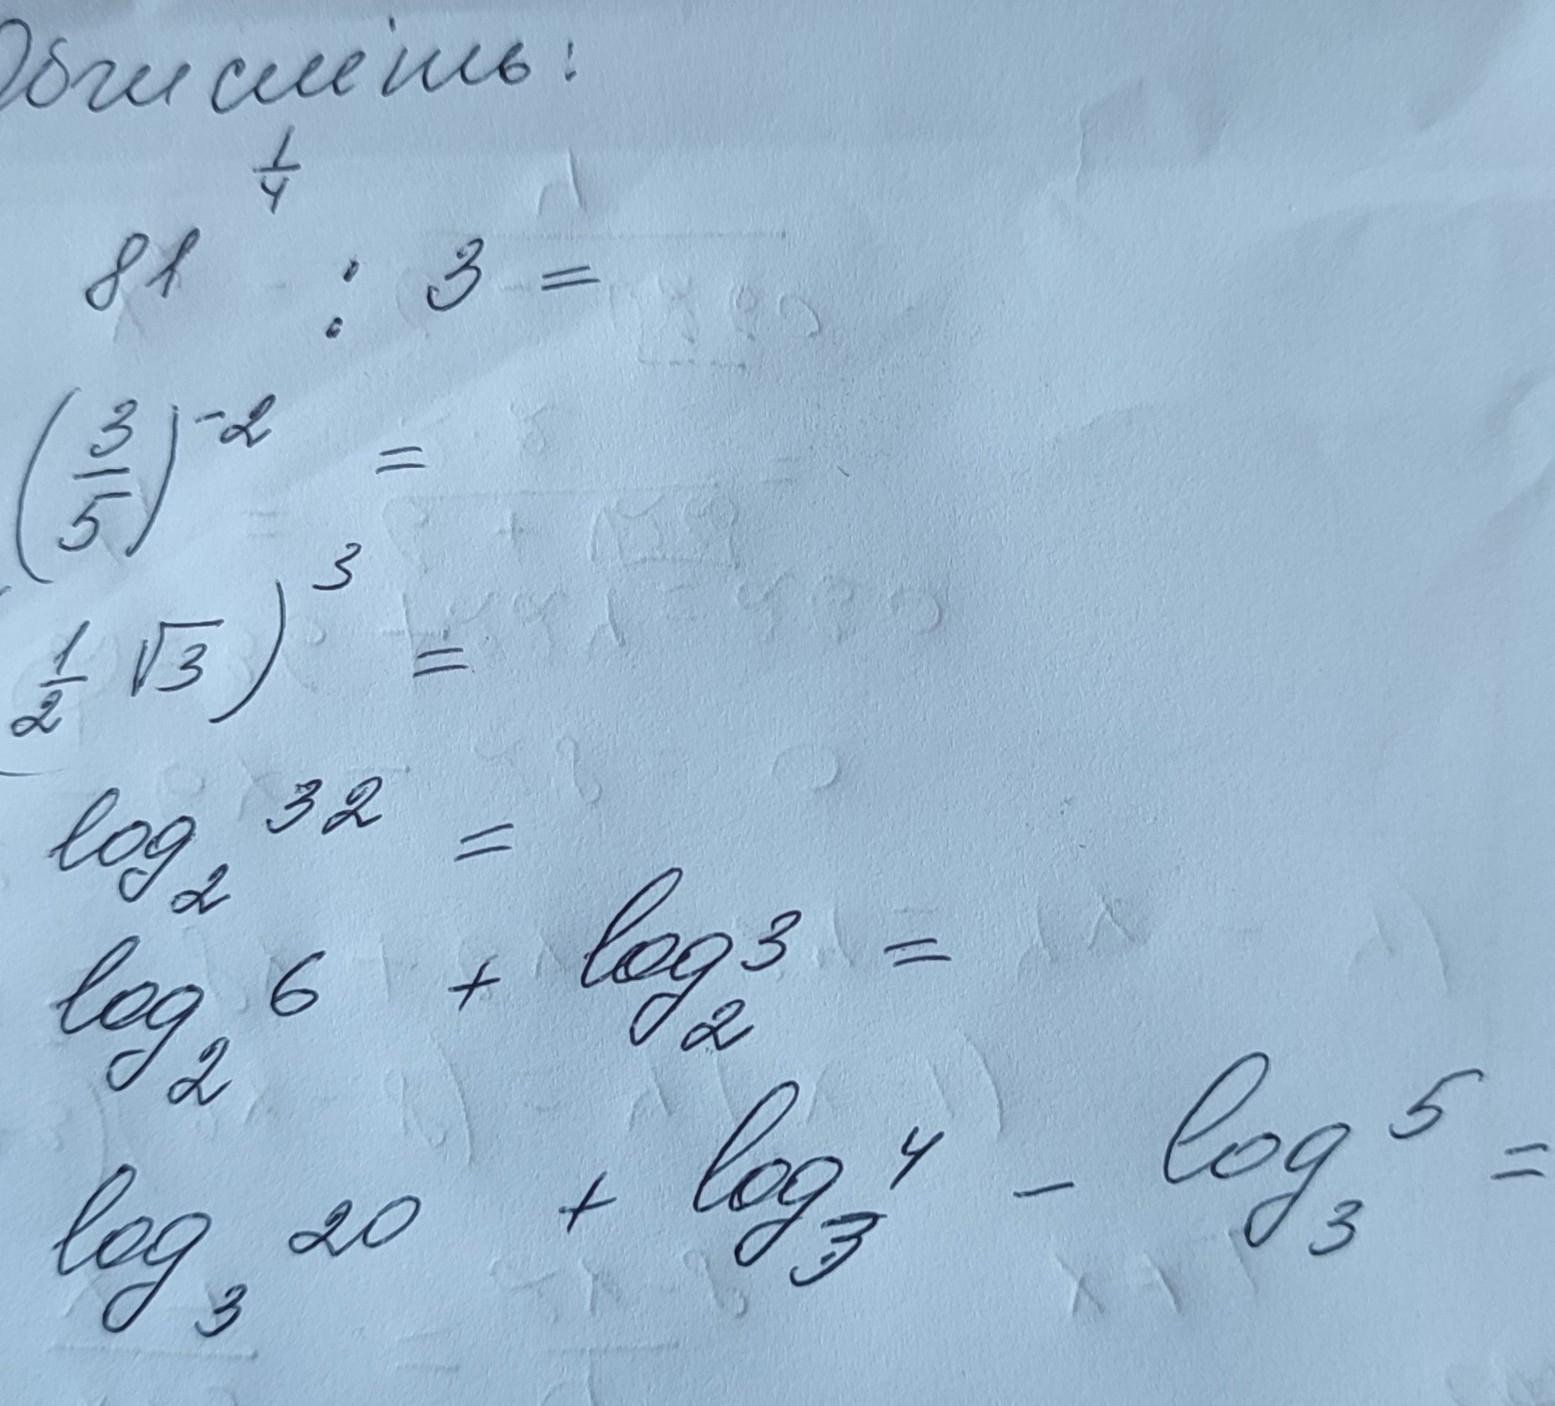 Обчисліть:
81^(1/4) : 3 =
(3/5)^-2 =
(1/2 √3)^3 =
log₂ 32 =
log₂ 6 + log₂ 3 =
log₃ 20 + log₃ 4 - log₃ 5 =